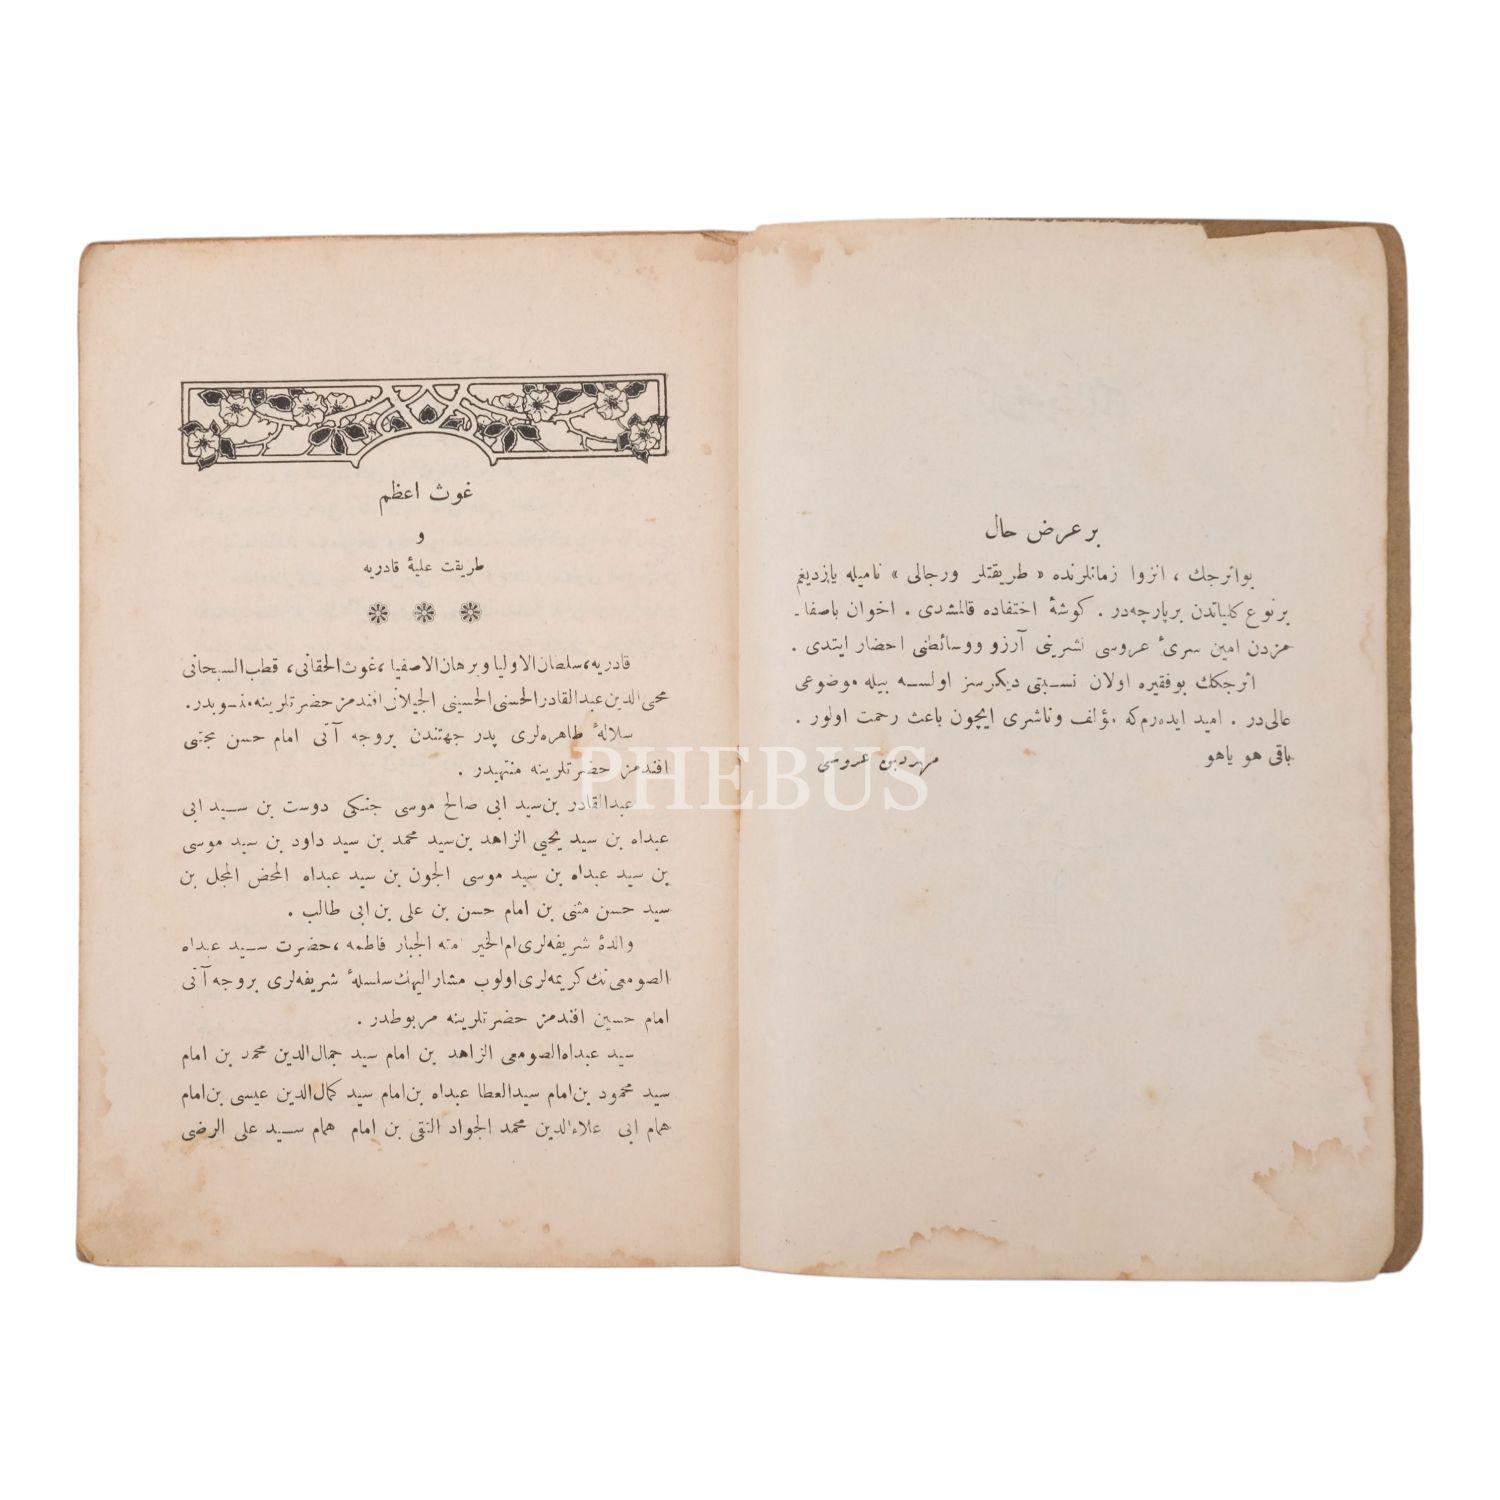 بر عرض حال
بو اثرجك ، انزوا زمانلرنده « طریقتلر ورجالی » نامیله یازدیغم
بر نوع کلیاتدن بر پارچه‌در . کوشهٔ اختفاده قالمشدی . اخوان باصفا ـ
مزدن امین سریٔ عروسی نشرینی آرزو ووسائطنی احضار ایتدی .
اثرجکك بوفقیره اولان نسـبتی دیکرسز اولسـه بیله موضوعی
عالی‌در . امید ایده‌رم‌که مؤلف وناشری ایچون باعث رحمت اولور .
باقی هو یاهو مهردین عروسی
غوث اعظم
و
طریقت علیهٔ قادریه
قادریه، سلطان الاولیا و برهان الاصفیا ، غوث الحقانی، قطب السبحانی
محی الدین عبدالقادر الحسنی الحسینی الجیلانی افندمز حضرتلرینه منسوبدر.
سلالهٔ طاهره‌لری پدر جهتندن بروجه آتی امام حسن مجتبی
افندمز حضرتلرینه منتهیدر .
عبدالقادر بن سید ابی صالح موسی جنکی دوست بن سـید ابی
عبداه بن سید یحیی الزاهد بن سید محمد بن سید داود بن سید موسی
بن سید عبداه بن سید موسی الجون بن سید عبداه المحض المجل بن
سید حسن مثنی بن امام حسن بن علی بن ابی طالب .
والدهٔ شریفه‌لری ام‌الخیر امته الجبار فاطمه ، حضرت سـید عبداه
الصومعی‌نك کریمه‌لری اولوب مشارالیهك سلسلهٔ شریفه‌لری بروجه آتی
امام حسین افندمز حضرتلرینه مربوطدر .
سید عبداه‌الصومعی الزاهد بن امام سید جمال‌الدین محمد بن امام
سید محمود بن‌امام سیدالعطا عبداه بن‌امام سید کمال‌الدین عیسی بن‌امام
همام ابی علاءالدین محمد الجواد التقی بن امام همام سـید علی الرضی
PHEBUS